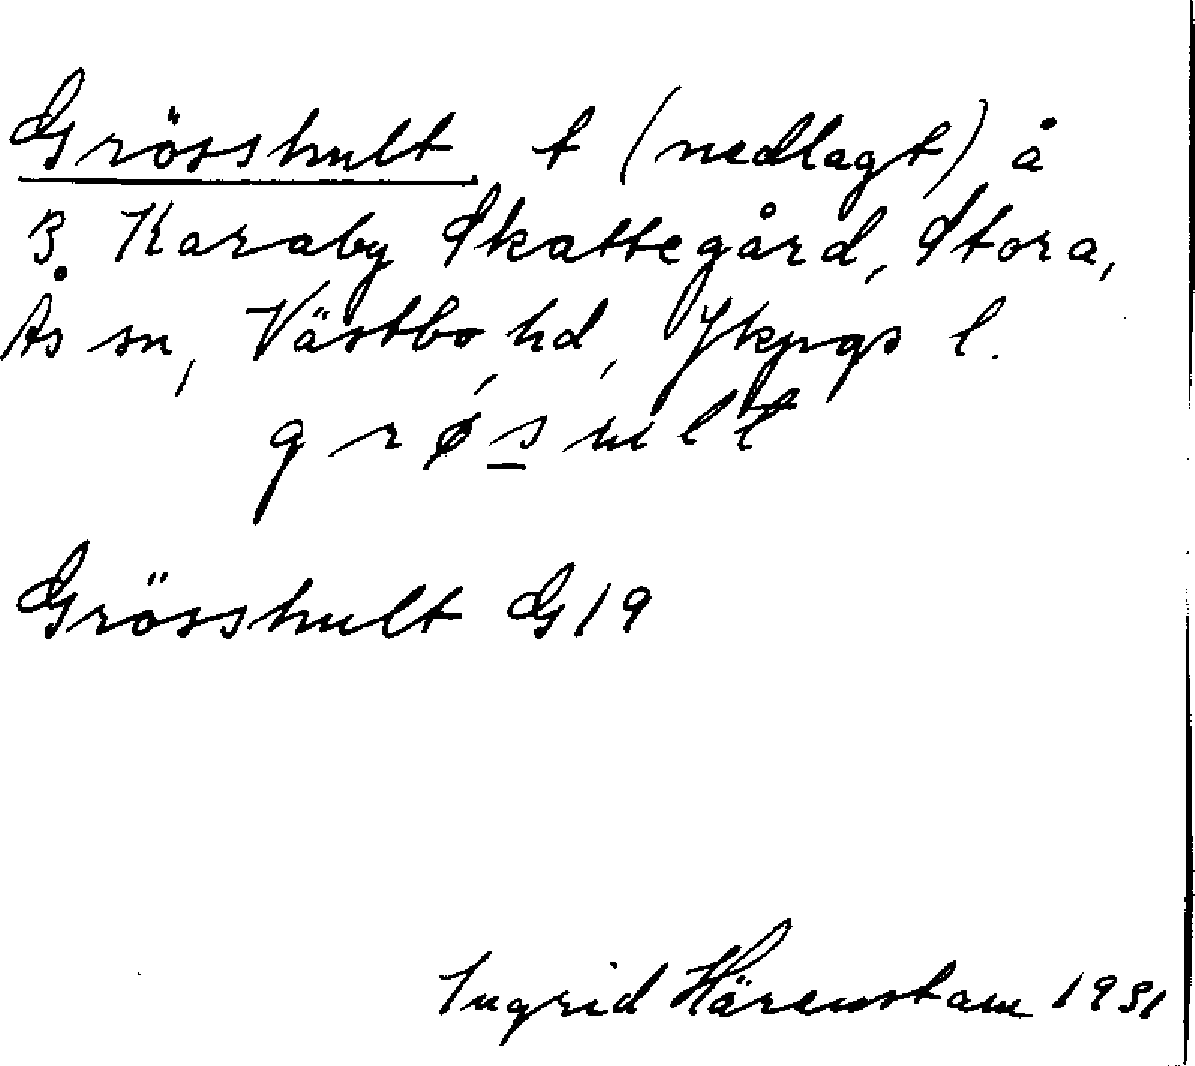 Grösshult t (nedlagt) å
3 Karaby Skattegård, Stora,
Ås sn, Västbo hd, Jkpgs l.
grøsult
Grösshult G19
Ingrid Härenstam 1931